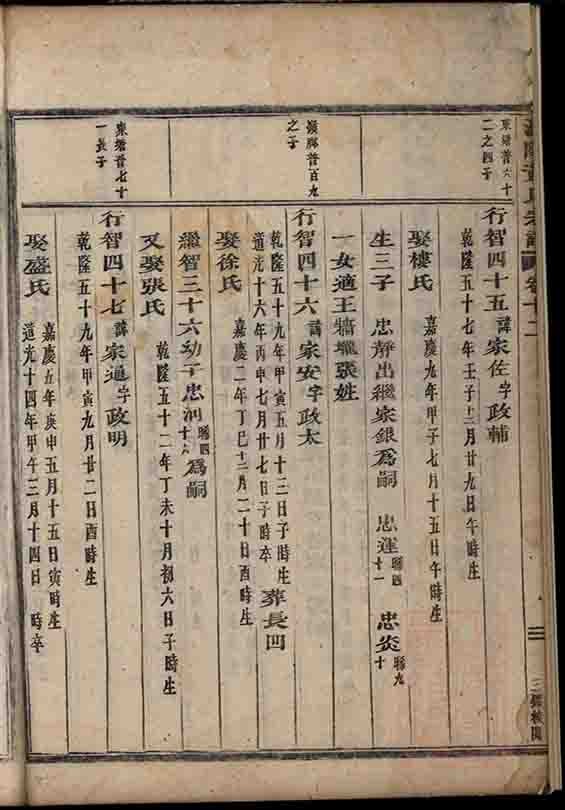 卷十二
東塘普六十
二之四子
行智四十五諱家佐字政輔
乾隆五十七年壬子十二月廿九日午時生
娶樓氏
嘉慶九年甲子七月十五日午時生
生三子 忠靜出繼家銀爲嗣 忠運縣四十一 忠炎縣九十
一女適王牆壠張姓
嶺腳普百九
之子
行智四十六諱家安字政太
乾隆五十九年甲寅五月十三日子時生
道光十六年丙申七月廿七日子時卒 葬長凹
娶徐氏
嘉慶二年丁巳十二月二十日酉時生
繼智三十六幼子忠河縣四十六爲嗣
又娶張氏
乾隆五十二年丁未十月初六日子時生
東塘普七十
一長子
行智四十七諱家通字政明
乾隆五十九年甲寅九月廿二日酉時生
娶盛氏
嘉慶五年庚申五月十五日寅時生
道光十四年甲午三月十四日 時卒